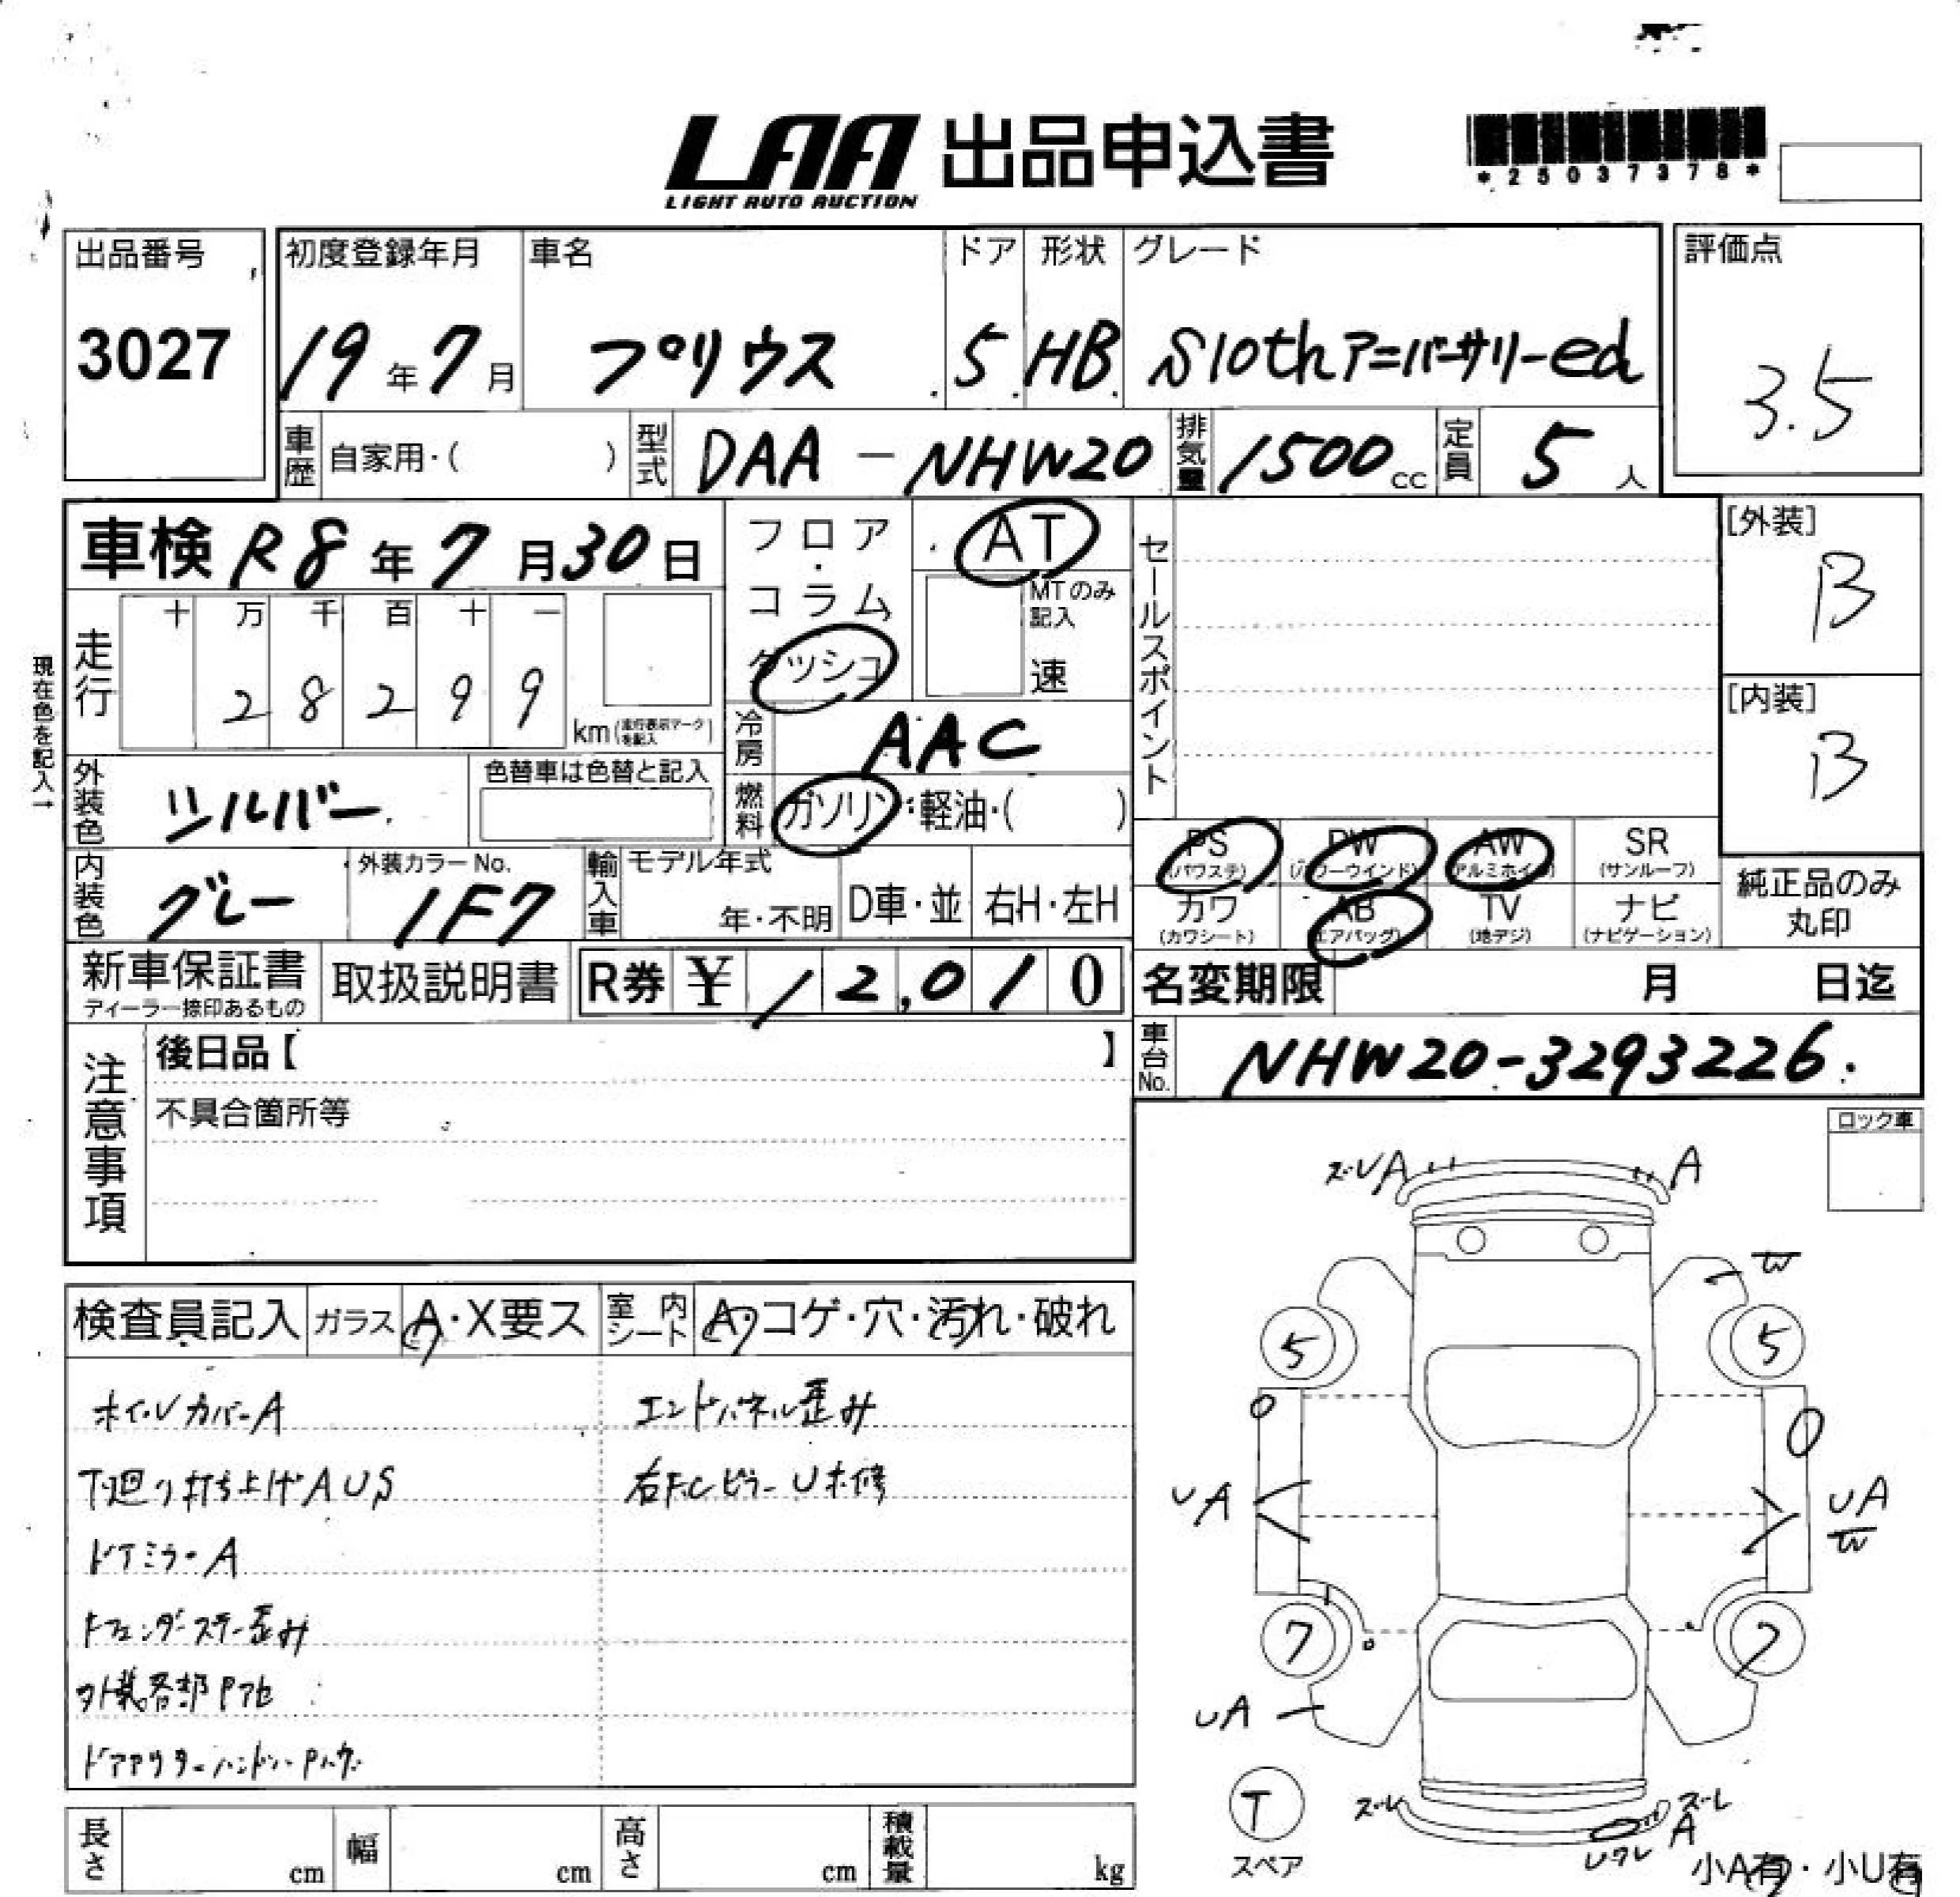 LAA 出品申込書
LIGHT AUTO AUCTION
*25037378*
出品番号
3027
初度登録年月
19年7月
車名
プリウス
ドア
5
形状
HB
グレード
S10thアニバーサリーed
評価点
3.5
車歴 自家用・( )
型式 DAA-NHW20
排気量 1500cc
定員 5人
車検 R8年7月30日
フロア・コラム
ダッシュ
AT
MTのみ記入
速
セールスポイント
[外装]
B
[内装]
B
現在色を記入→
走行
十 万 千 百 十 一
2 8 2 9 9
km(走行表示マークを記入)
冷房 AAC
燃料 ガソリン・軽油・( )
外装色 シルバー
色替車は色替と記入
内装色 グレー
外装カラーNo.
1F7
輸入車
モデル年式
年・不明
D車・並
右H・左H
PS
(パワステ)
PW
(パワーウインド)
AW
(アルミホイル)
SR
(サンルーフ)
カワ
(カワシート)
AB
(エアバッグ)
TV
(地デジ)
ナビ
(ナビゲーション)
純正品のみ
丸印
新車保証書
ディーラー捺印あるもの
取扱説明書
R券 ¥ 12,010
名変期限 月 日迄
車台No. NHW20-3293226
注意事項
後日品【 】
不具合箇所等
ロック車
検査員記入
ガラス A・X要ス
室内シート A・コゲ・穴・汚れ・破れ
ホイルカバーA
下廻り打ち上げAUS
ドアミラーA
Fフェンダーステー歪み
外装各部Pアセ
エンドパネル歪み
右F.Cピラー U未修
ズレA
A
W
5
5
UA
UA
W
7
7
UA
T
スペア
ズレ
ズレ
A
ワレ
小A有・小U有
長さ cm
幅 cm
高さ cm
積載量 kg